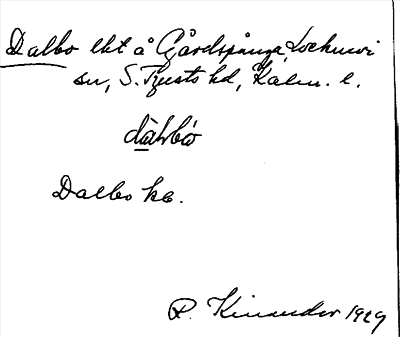 Dalbo lht å Gårdspånga, Locknevi
sn, S. Tjusts hd, Kalm. l.
dàlbò
Dalbo kb.
R. Kinander 1929